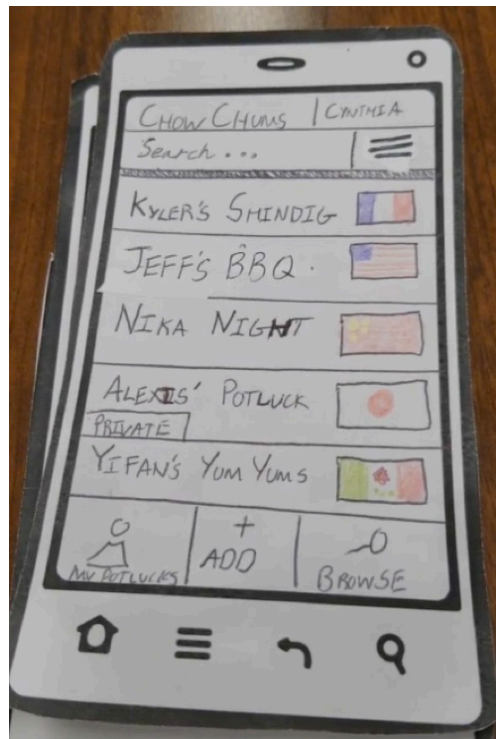 CHOW CHUMS | CYNTHIA
Search...
KYLER'S SHINDIG
JEFF'S BBQ.
NIKA NIGHT
ALEXIS' POTLUCK
PRIVATE
YIFAN'S YUM YUMS
MY POTLUCKS
+
ADD
BROWSE